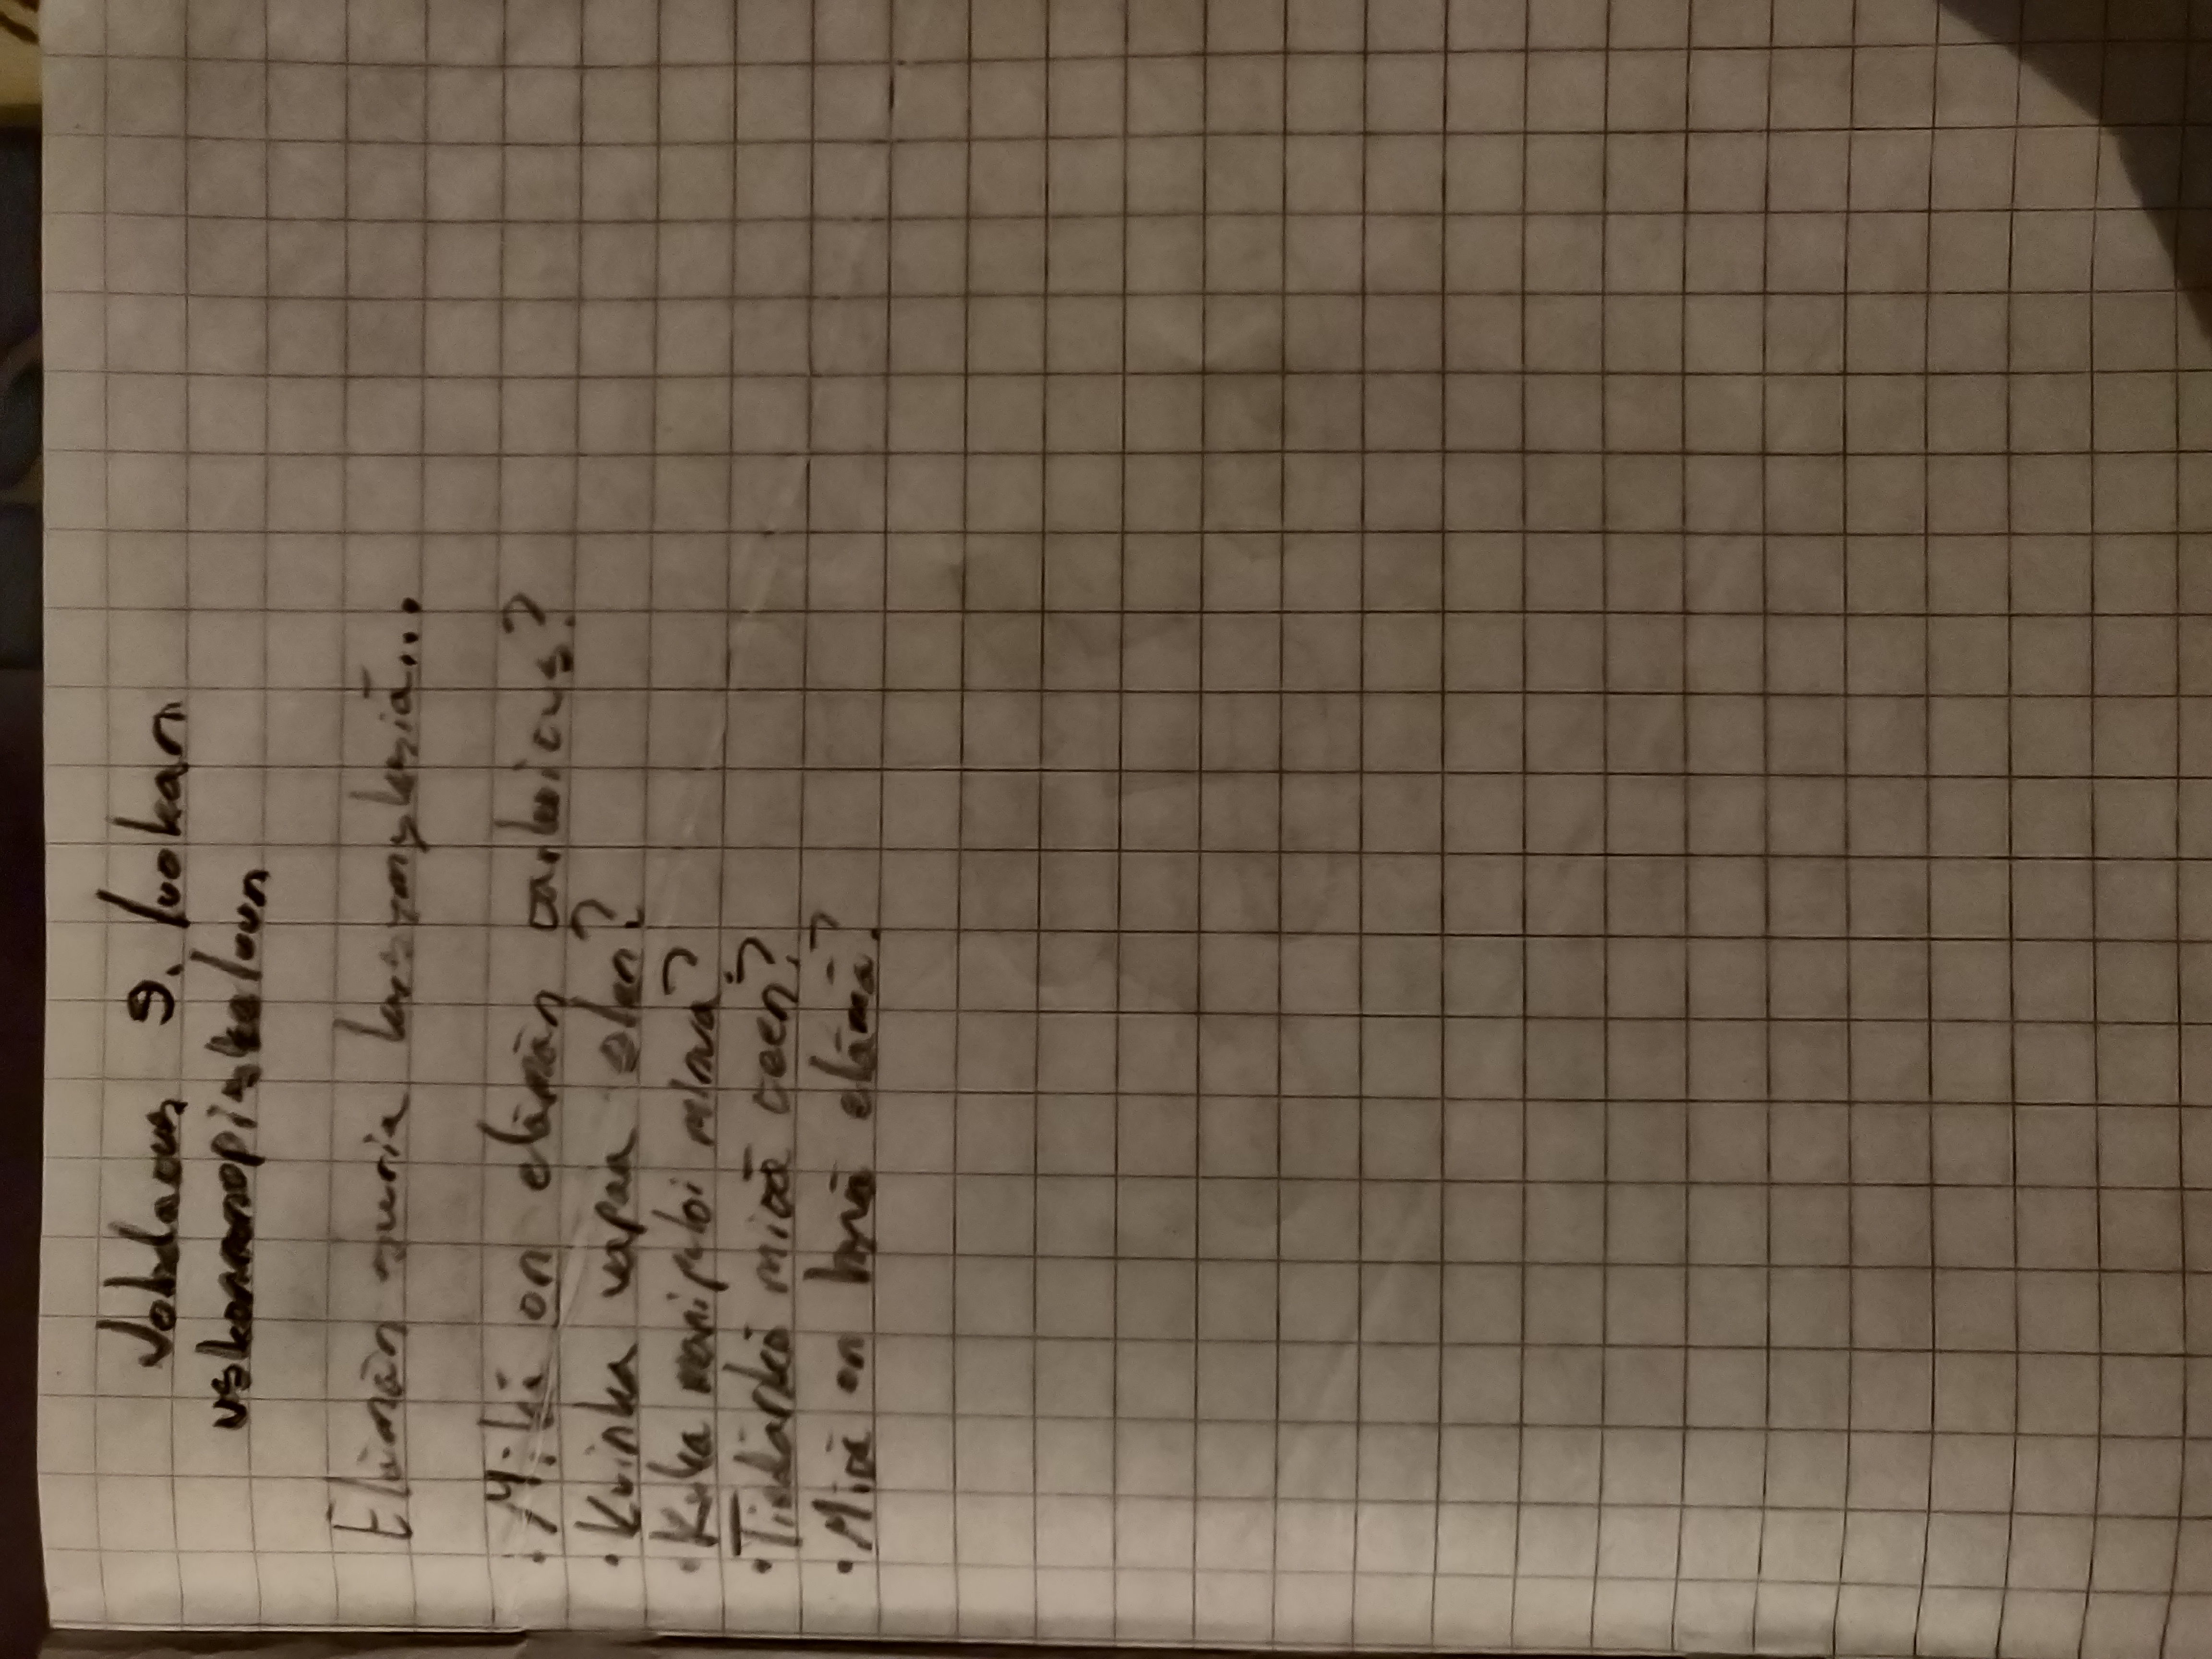 Johdatus 9. luokan
uskonnonopiskeluun
Elämän suuria kysymyksiä...
• Mikä on elämän tarkoitus?
• Kuinka vapaa olen?
• Kuka minä?
• Tiedänkö mitä teen?
• Mitä on hyvä elämä?